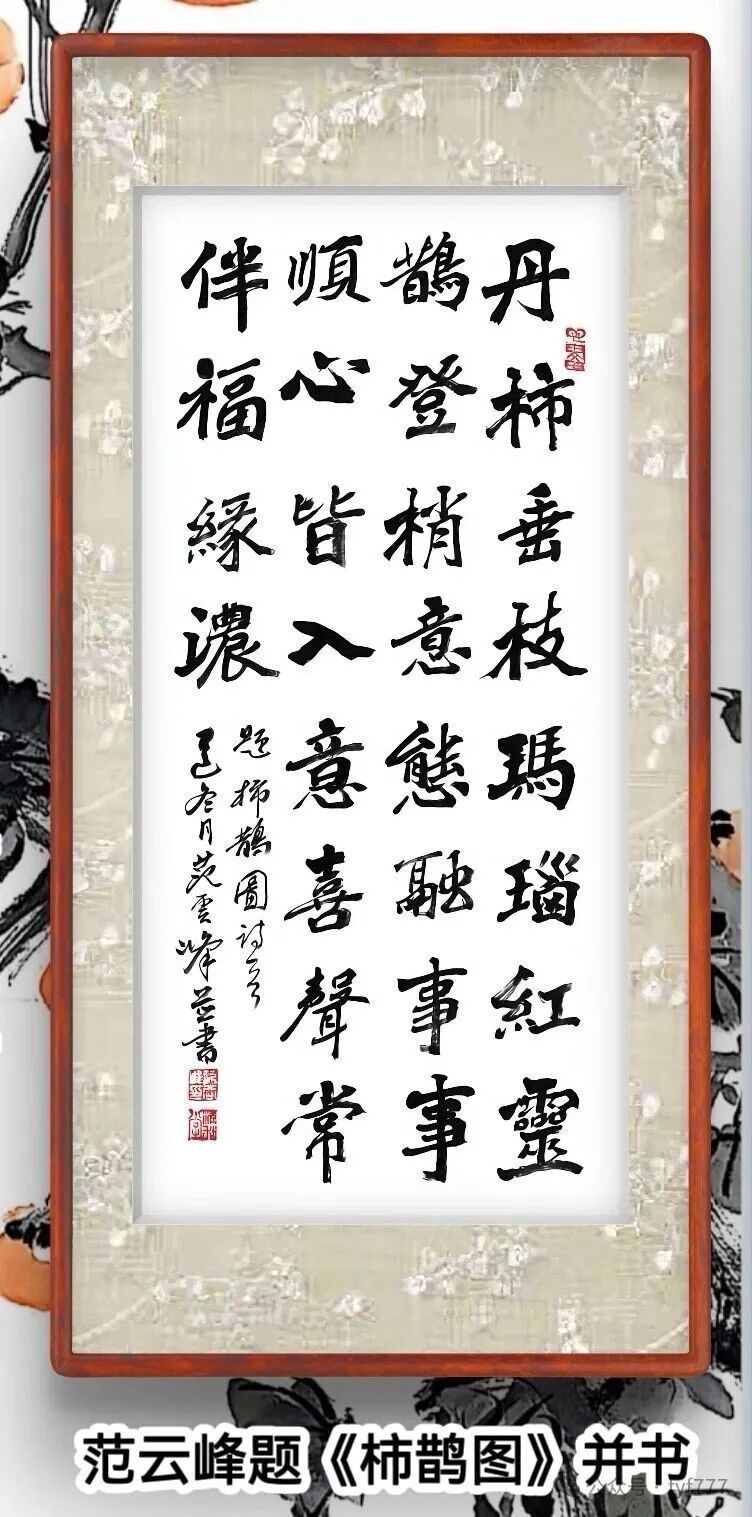 丹柿垂枝瑪瑙紅靈
鵲登梢意態融事事
順心皆入意喜聲常
伴福緣濃
題柿鵲圖詩一首
乙巳冬月范雲峰并書
范云峰题《柿鹊图》并书
公众号·fyf777